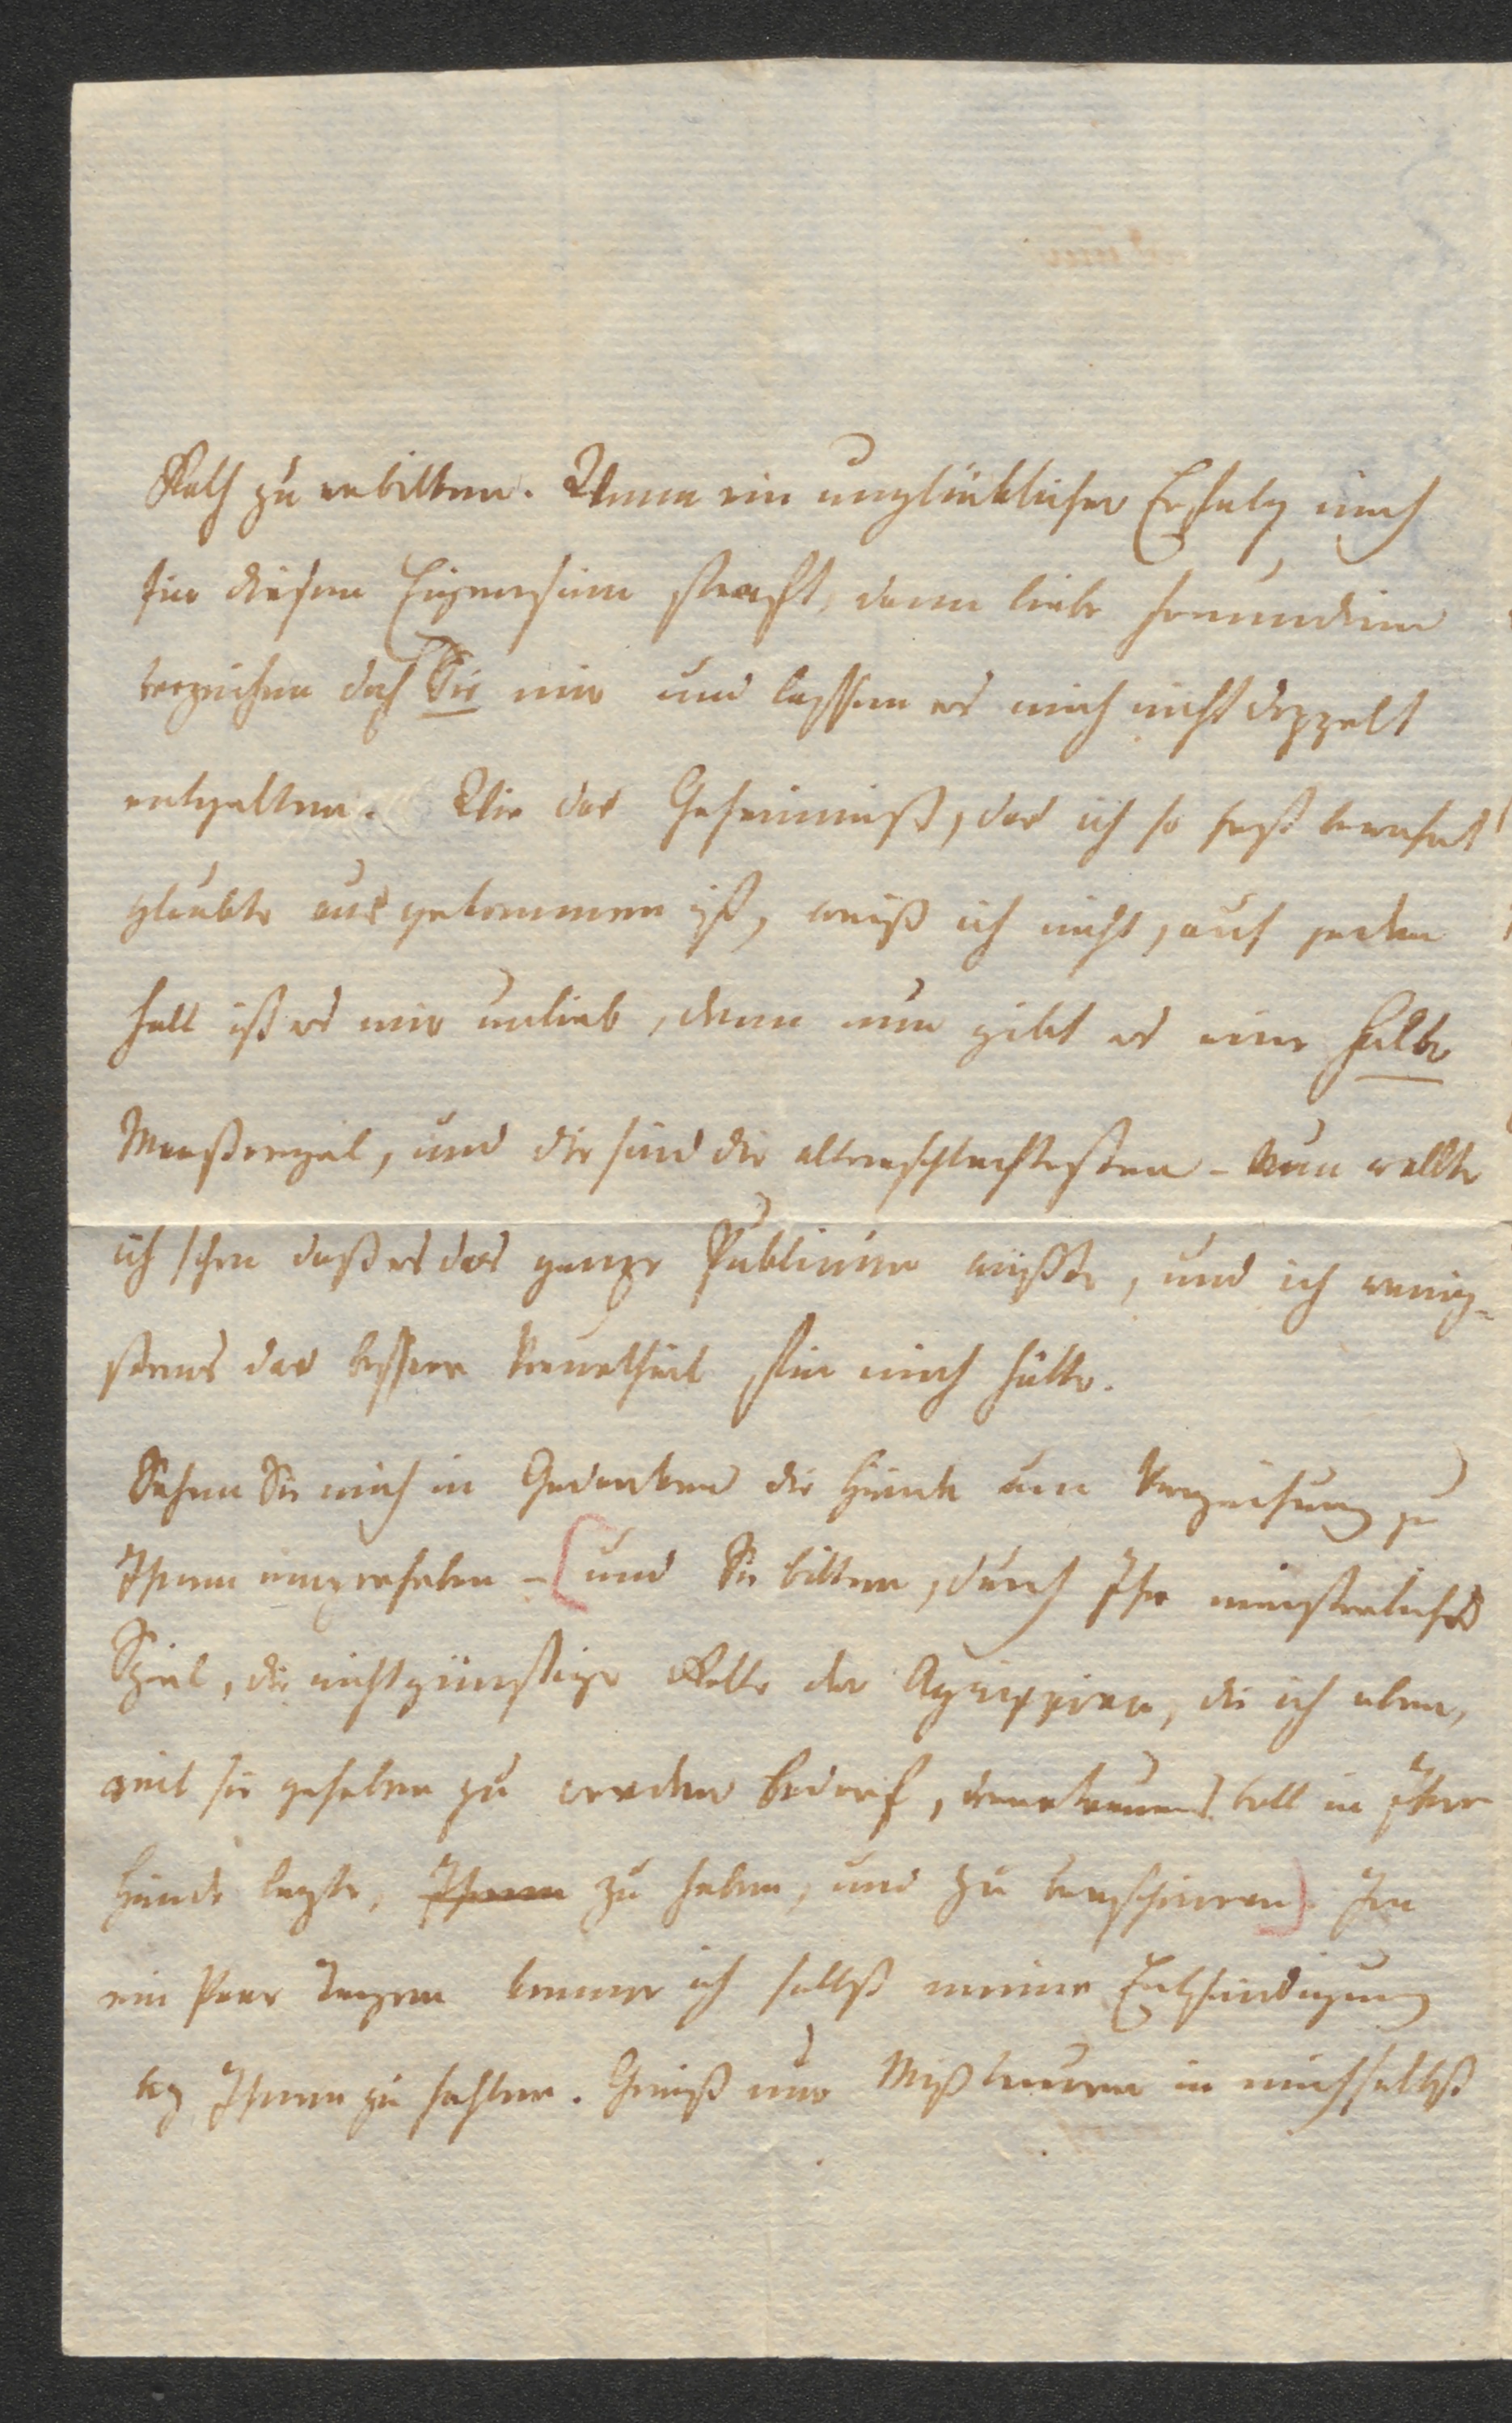 Rath zu erbitten. Wenn ein unglücklicher Erfolg mich
für diesen Eigensinn straft, dann liebe Freundinn
verzeihen doch Sie mir und lassen es mich nicht doppelt
entgelten. Wie das Geheimniß, das ich so fest bewahrt
glaubte ausgekommen ist, weiß ich nicht, auf jeden
Fall ist es mir unlieb, denn nun gibt es eine halbe
Maaßregel, und die sind die allerschlechtesten – Nun wollte
ich schon daß es das ganze Publicum wüßte, und ich wenig-
stens das bessere Vorurtheil für mich hätte.
Sehen Sie mich in Gedanken die Hände um Verzeihung zu
Ihnen emporheben – (und Sie bitten, durch Ihr meisterliches
Spiel, die nicht günstige Rolle der Agrippina, die ich eben,
weil sie gehoben zu werden bedarf, vertrauensvoll in Ihre
Hände legte, Ihnen zu heben, und zu verschönern). In
ein Paar Tagen komme ich selbst meine Entsündigung
bey Ihnen zu hohlen. Gewiß nur Mißtrauen in mich selbst